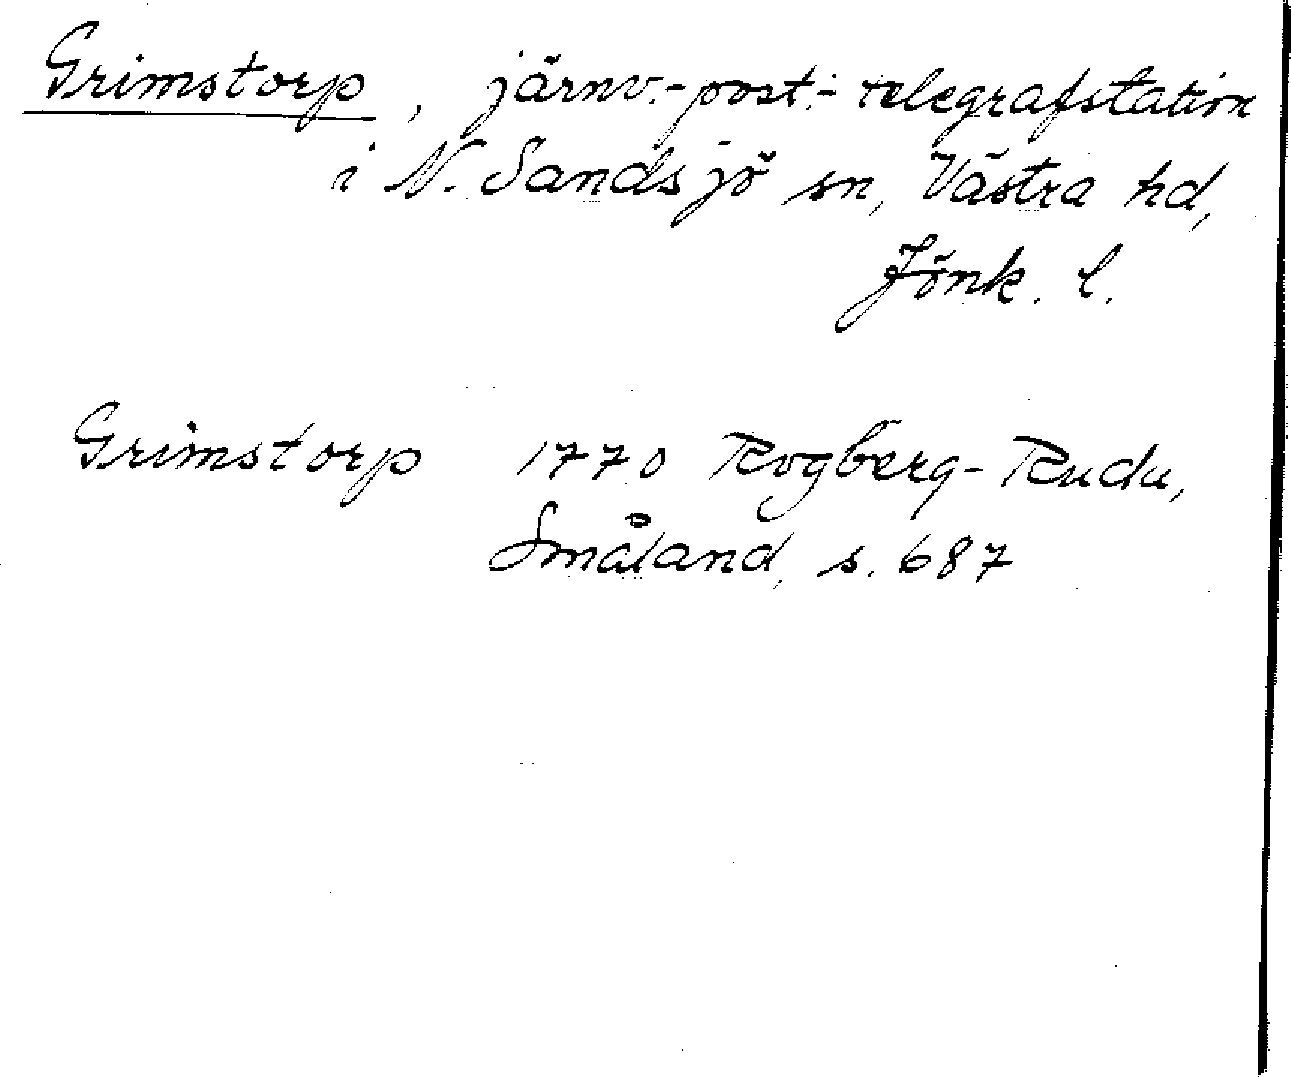 Grimstorp, järnv.-post.-telegrafstation
i N. Sandsjö sn, Västra hd,
Jönk. l.
Grimstorp 1770 Rogberg-Ruda,
Småland, s. 687